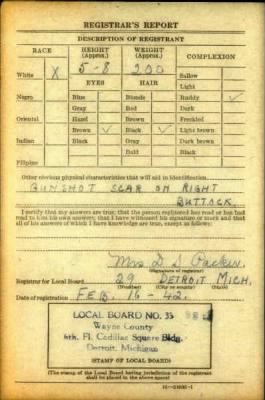 REGISTRAR'S REPORT
DESCRIPTION OF REGISTRANT
RACE HEIGHT (Approx.) WEIGHT (Approx.) COMPLEXION
White X 5-8 200 Sallow
EYES HAIR Light
Negro Blue Blonde Ruddy ✓
Gray Red Dark
Oriental Hazel Brown Freckled
Brown ✓ Black ✓ Light brown
Indian Black Gray Dark brown
Bald Black
Filipino
Other obvious physical characteristics that will aid in identification.
GUNSHOT SCAR ON RIGHT
BUTTOCK.
I certify that my answers are true; that the person registered has read or has had
read to him his own answers; that I have witnessed his signature or mark and that
all of his answers of which I have knowledge are true, except as follows:
Mrs D S
(Signature of registrar)
Registrar for Local Board 29 DETROIT MICH.
(Number) (City or county) (State)
Date of registration FEB. 16-42.
LOCAL BOARD NO. 33
Wayne County
6th. Fl. Cadillac Square Bldg.
Detroit, Michigan
(STAMP OF LOCAL BOARD)
(The stamp of the Local Board having jurisdiction of the registrant
shall be placed in the above space.)